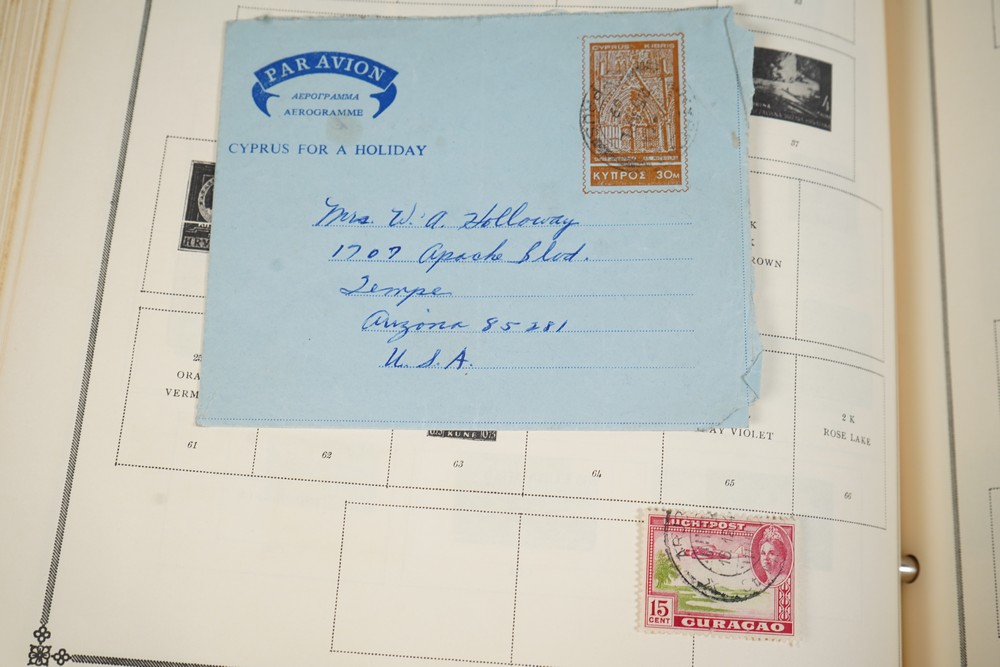 PAR AVION
ΑΕΡΟΓΡΑΜΜΑ
AEROGRAMME
CYPRUS FOR A HOLIDAY
CYPRUS KIBRIS
ΚΥΠΡΟΣ 30M
Mrs. W. A. Holloway
1707 Apache Blvd.
Tempe
Arizona 85281
U.S.A.
4
37
HRV
K
K
ROWN
ORA
VERM
61
62
KUNE
63
64
VIOLET
65
2 K
ROSE LAKE
66
LUCHTPOST
15
CENT
CURAÇAO